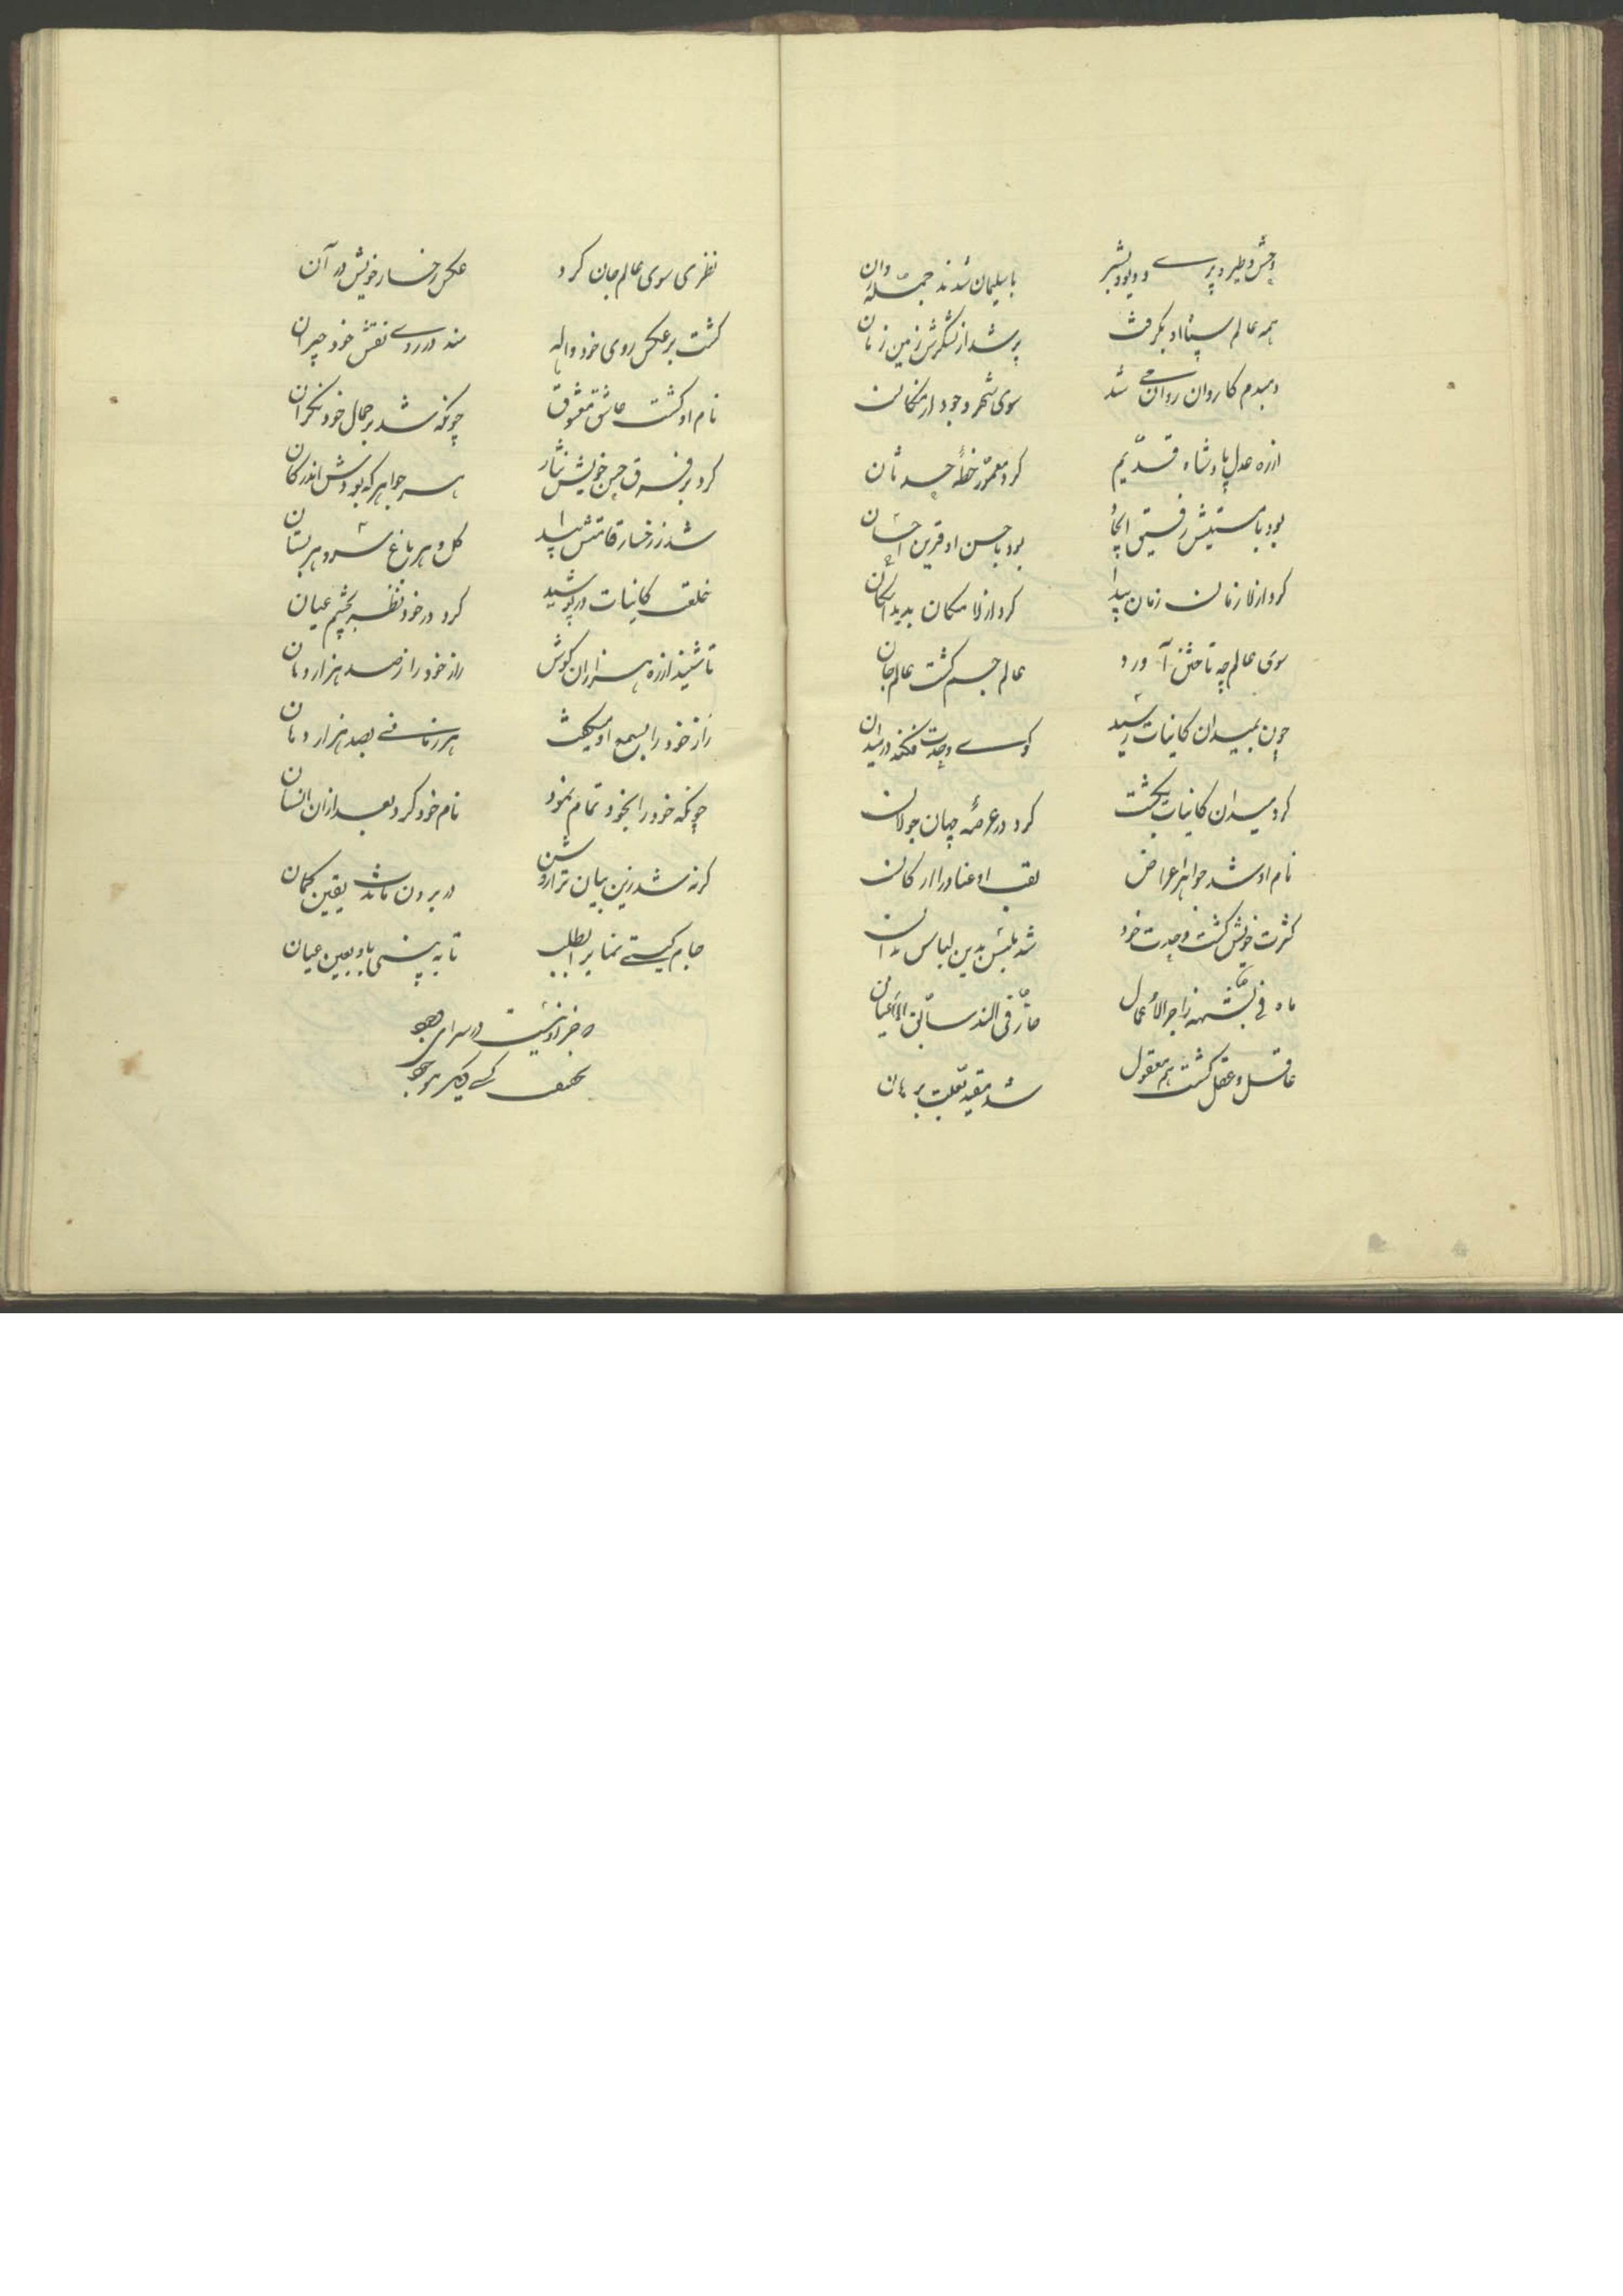 وحش و طیر و پری و دیو و بشر
با سلیمان شدند جمله روان
همه عالم سپاه او بگرفت
پر شد از لشکرش زمین زمان
دمبدم کاروان روان می شد
سوی شهر وجود از امکان
از ره عدل پادشاه قدیم
کرد معمور خطه حدثان
بود با هستیش رفیق
بود با حسن او قرین احسان
کرد از لا زمان زمان پیدا
کرد از لا مکان پدید امکان
سوی عالم چه تاختن آورد
عالم جسم گشت عالم جان
چون بمیدان کاینات رسید
کوی وحدت فکند در میدان
کرد میدان کاینات بگشت
کرد در عرصه جهان جولان
نام او شد جواهر اعراض
لقب او عناصر ار کان
کثرت خویش گشت وحدت خود
شد ملبس بدین لباس و آن
ماه فی
حار فی
عاقل و عقل گشت هم معقول
شد مقید بقلب برهان
نظری سوی عالم جان کرد
عکس رخسار خویش در آن
گشت بر عکس روی خود واله
شد در روی نقش خود حیران
نام او گشت عاشق معشوق
چونکه شد بر جمال خود نگران
کرد بر فرق حسن خویش نثار
هر جواهر که بودش اندر کان
شد ز رخسار قامتش پیدا
گل هر باغ سرو هر بستان
خلق کاینات در پوشید
کرد در خود نظر بچشم عیان
تا شنید از ره هزاران گوش
راز خود را ز صد هزار دهان
راز خود را بسمع او میگفت
هر زمانی بصد هزار دهان
چونکه خود را بخود تمام نمود
نام خود کرد بعد از آن انسان
گر نه شد زین بیان ترا روشن
در برون ماند یقین گمان
جام گیتی نما بر او بطلب
تا به بینی باو بعین عیان
که جز او نیست در سرای وجود
بحقیقت کسی دیگر موجود